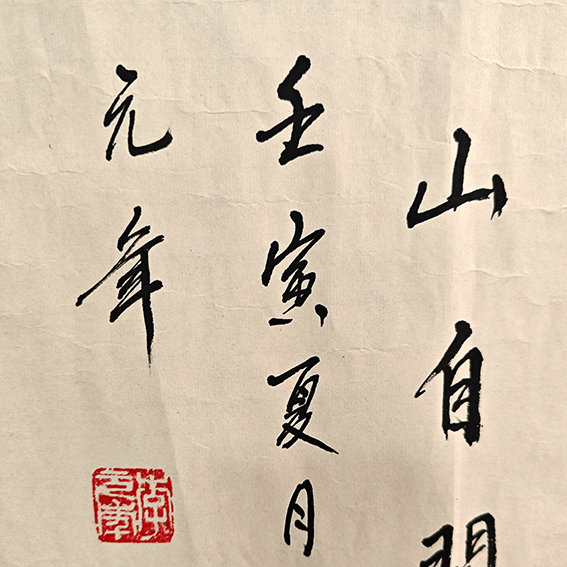 山自
壬寅夏月
元年